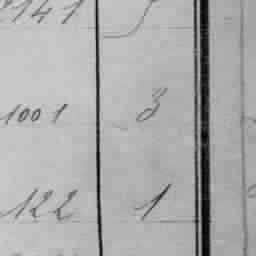 2141 5
1001 3
122 1